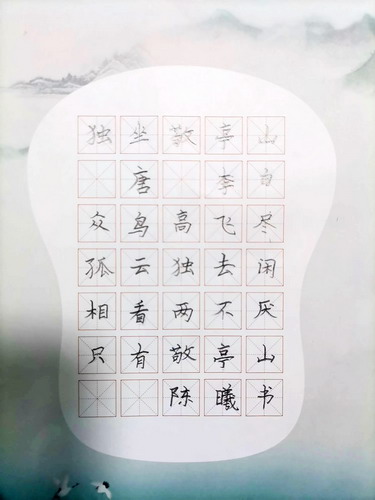 独坐敬亭山
唐 李白
众鸟高飞尽
孤云独去闲
相看两不厌
只有敬亭山
陈曦书